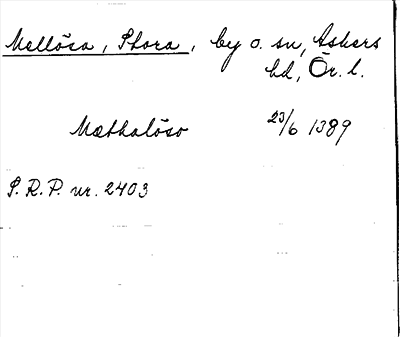 Mellösa, Stora, by o. sn, Askers
hd, Ör. l.
Mæthalöso 23/6 1389
S.R.P. nr. 2403